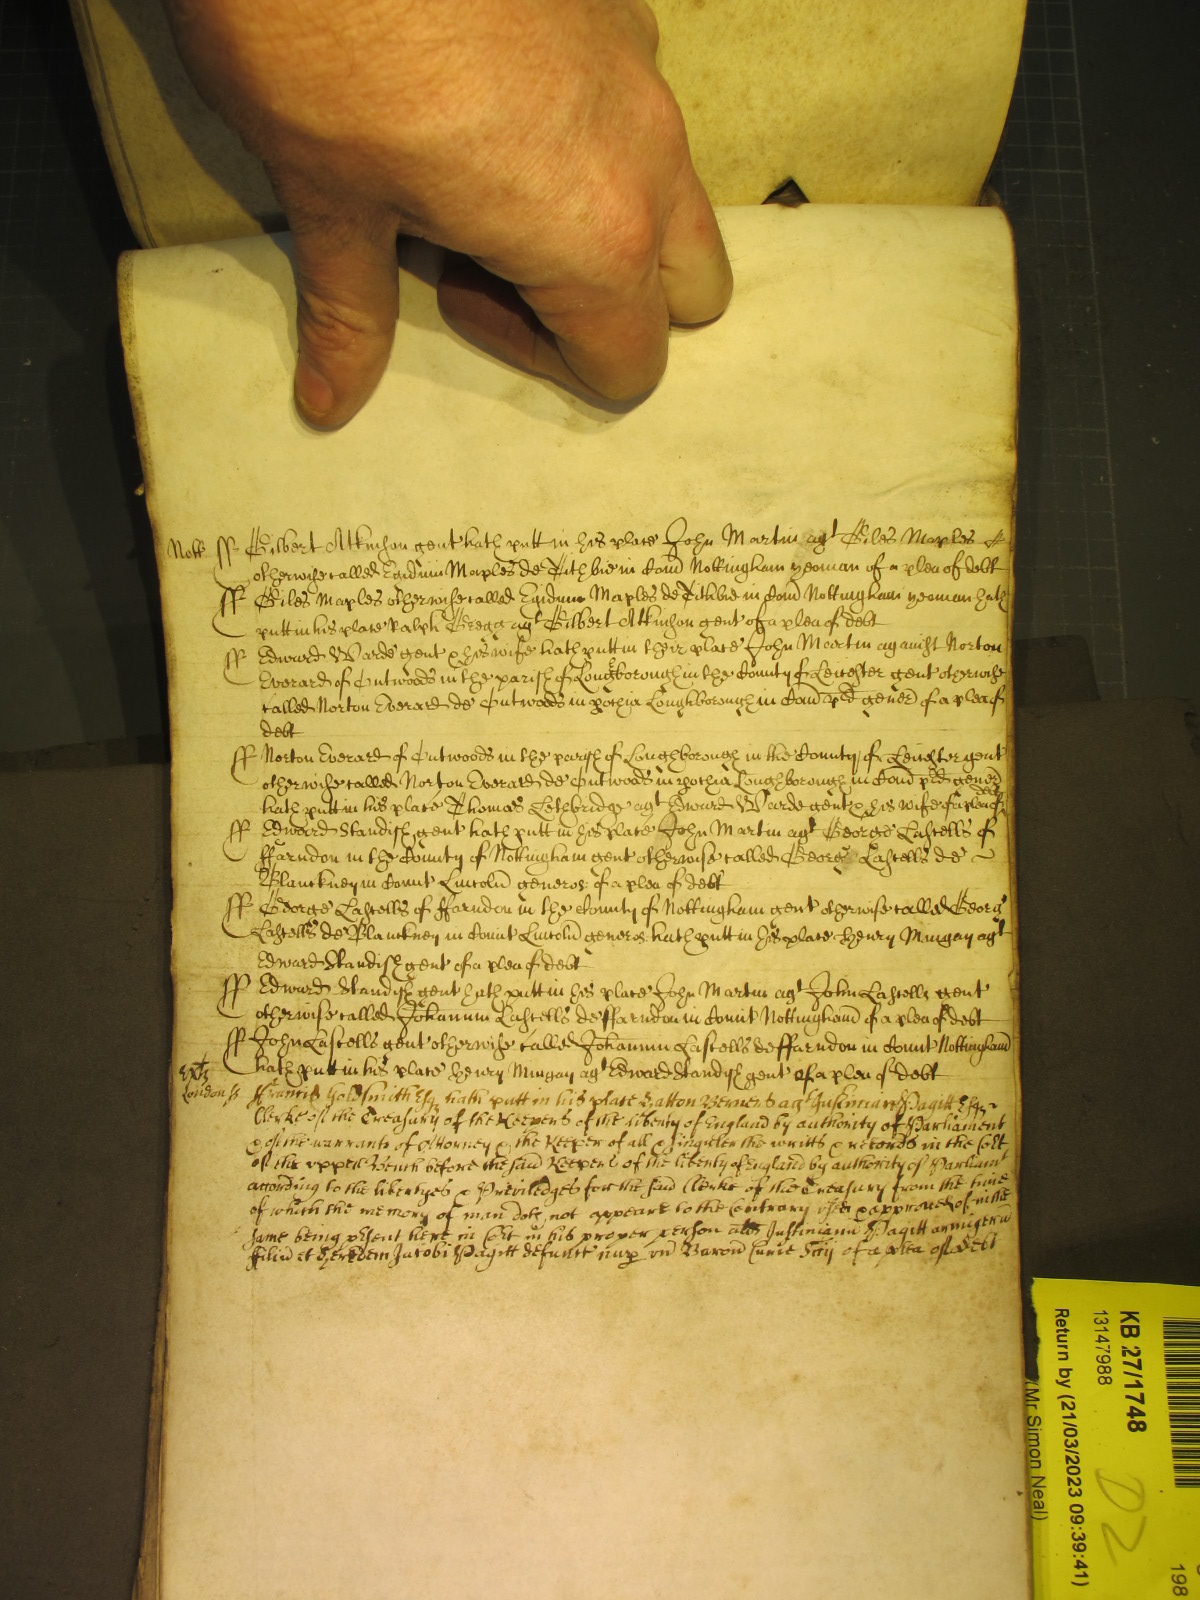 Nott ff Gilbert Atkinson gent hath putt in his place John Martin agt Giles Maples
otherwise called Egidium Maples de Tithbie in Com Nottingham yeoman of a plea of debt
ff Giles Maples otherwise called Egidium Maples de Tithbie in Com Nottingham yeoman hath
putt in his place Ralph Gregg agt Gilbert Atkinson gent of a plea of debt
ff Edward Warde gent & his wife hath putt in their place John Martin against Norton
Everard of Outwoods in the parish of Loughborough in the County of Leicester gent otherwise
called Norton Everard de Outwoods in pochia Loughborough in Com pd genero of a plea of
debt
ff Norton Everard of Outwoods in the parish of Loughborough in the County of Leicester gent
otherwise called Norton Everard de Outwoods in pochia Loughborough in Com pd genero
hath putt in his place Thomas Lethbridge agt Edward Warde gent & his wife of a plea of debt
ff Edward Standish gent hath putt in his place John Martin agt George Lascells of
ffarndon in the County of Nottingham gent otherwise called George Lascells de
Blanckney in Comit Lincoln generos of a plea of debt
ff George Lascells of ffarndon in the County of Nottingham gent otherwise called Georg
Lascells de Blanckney in Comit Lincoln generos hath putt in his place Henry Mingay agt
Edward Standish gent of a plea of debt
ff Edward Standish gent hath putt in his place John Martin agt John Lascells gent
otherwise called Johannem Lascells de ffarndon in Comit Nottingham of a plea of debt
ff John Lascells gent otherwise called Johannem Lascells de ffarndon in Comit Nottingham
hath putt in his place Henry Mingay agt Edward Standish gent of a plea of debt
London ss ffrancis Goldsmith Esq hath putt in his place Hatton Berners agt Justinian Pagitt Esqr
Clerke of the Treasury of the Keepers of the liberty of England by authority of Parliament
& of the warrants of Attorney & the Keeper of all & singuler the writts & records in the Cort
of the upper Bench before the said Keepers of the liberty of England by authority of Parliamt
according to the libertyes & Priviledges for the said Clerke of the Treasury from the time
of which the memory of man doth not appeare to the contrary used & approved of in the
same being psent here in Cort in his proper person als Justinianu Pagitt armigeru
filiu et heredem Jacobi Pagitt defunct nup un Baron Curie Scij of a plea of debt
KB 27/1748
13147988
Return by (21/03/2023 09:39:41)
(Mr Simon Neal)
D2
198